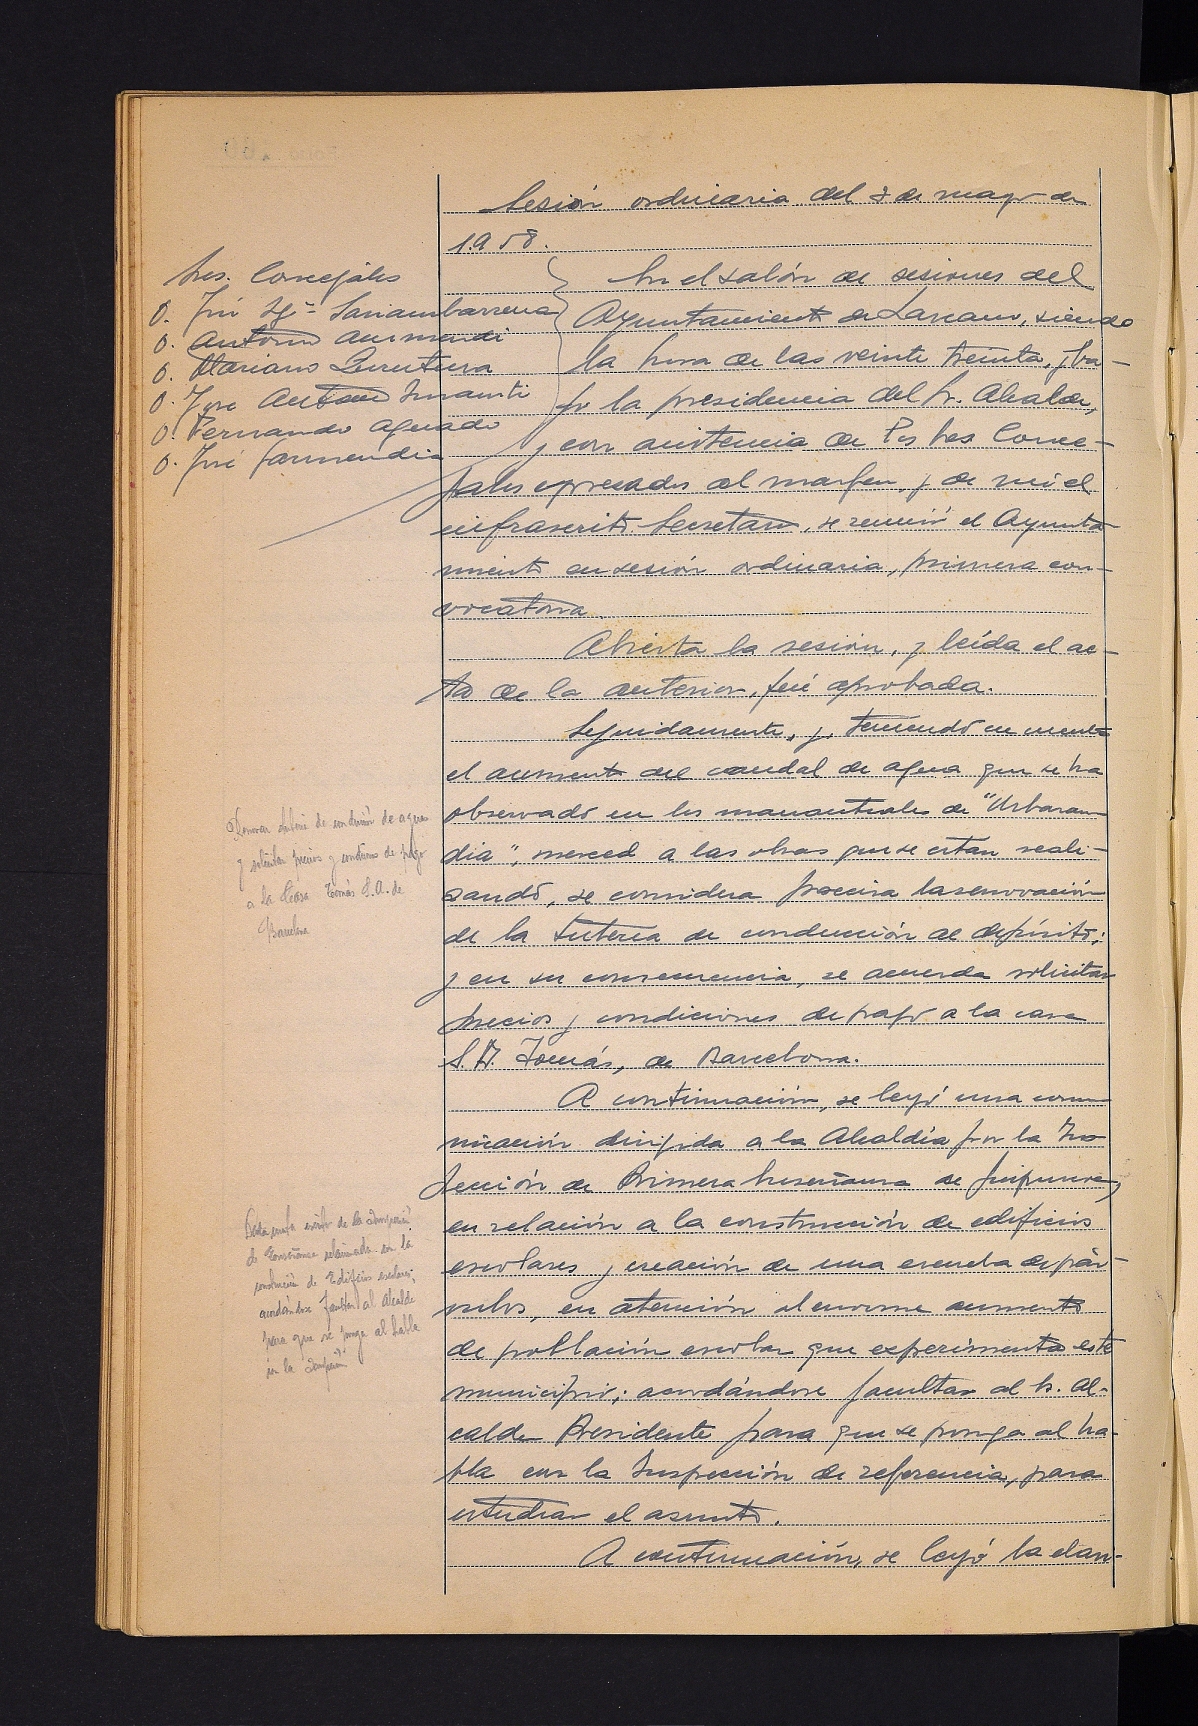 Sesión ordinaria del 8 de mayo de
1.958.
Sres. Concejales
D. José Mª Sarasambarrena
D. Antonio Aurmendi
D. Mariano
D. Jose Antonio Insausti
D. Fernando Aguado
D. José Garmendia
En el salón de sesiones del
Ayuntamiento de Lazcano, siendo
la hora de las veinte treinta, y ba-
jo la presidencia del Sr. Alcalde,
y con asistencia de los Sres Conce-
jales expresados al margen, y de mi el
infrascrito Secretario, se reunió el Ayunta
miento en sesión ordinaria, primera con-
vocatoria.
Abierta la sesión, y leída el ac-
ta de la anterior, fué aprobada.
Seguidamente, y, teniendo en cuenta
el aumento del caudal de agua que se ha
observado en los manantiales de "Urbaran
dia", merced a las obras que se estan reali-
zando, se considera precisa la renovación
de la tuberia de conducción al depósito;
y en su consecuencia, se acuerda solicitar
precios y condiciones de pago a la casa
S.A. Tomás, de Barcelona.
A continuación, se leyó una comu
nicación dirigida a la Alcaldía por la Ins
pección de Primera Enseñanza de Guipuzcoa,
en relación a la construcción de edificios
escolares y creación de una escuela de pár-
vulos, en atención al enorme aumento
de población escolar que experimenta este
municipio; acordándose facultar al Sr. Al-
calde Presidente para que se ponga al ha-
bla con la Inspección de referencia, para
estudiar el asunto.
A continuación, se leyó la clau-
Renovar tuberia de conducción de aguas
y solicitar precios y condicions de pago
a la Casa Tomás S.A. de
Barcelona
Dada cuenta escrito de la Inspección
de Enseñanza relacionada con la
construcción de Edificios escolares,
acordándose facultar al Alcalde
para que se ponga al habla
con la Inspección